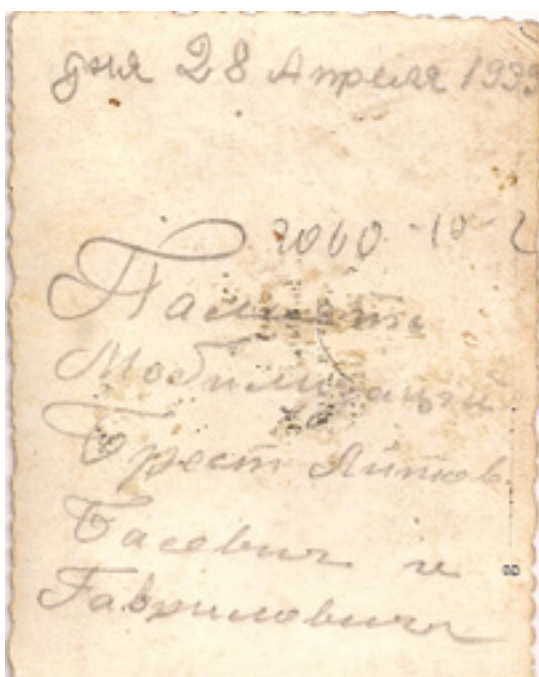 дня 28 Апреля 1939
2060-10-2
Память
Мобилизаций
Брест Литов.
Басевич и
Гаврилович